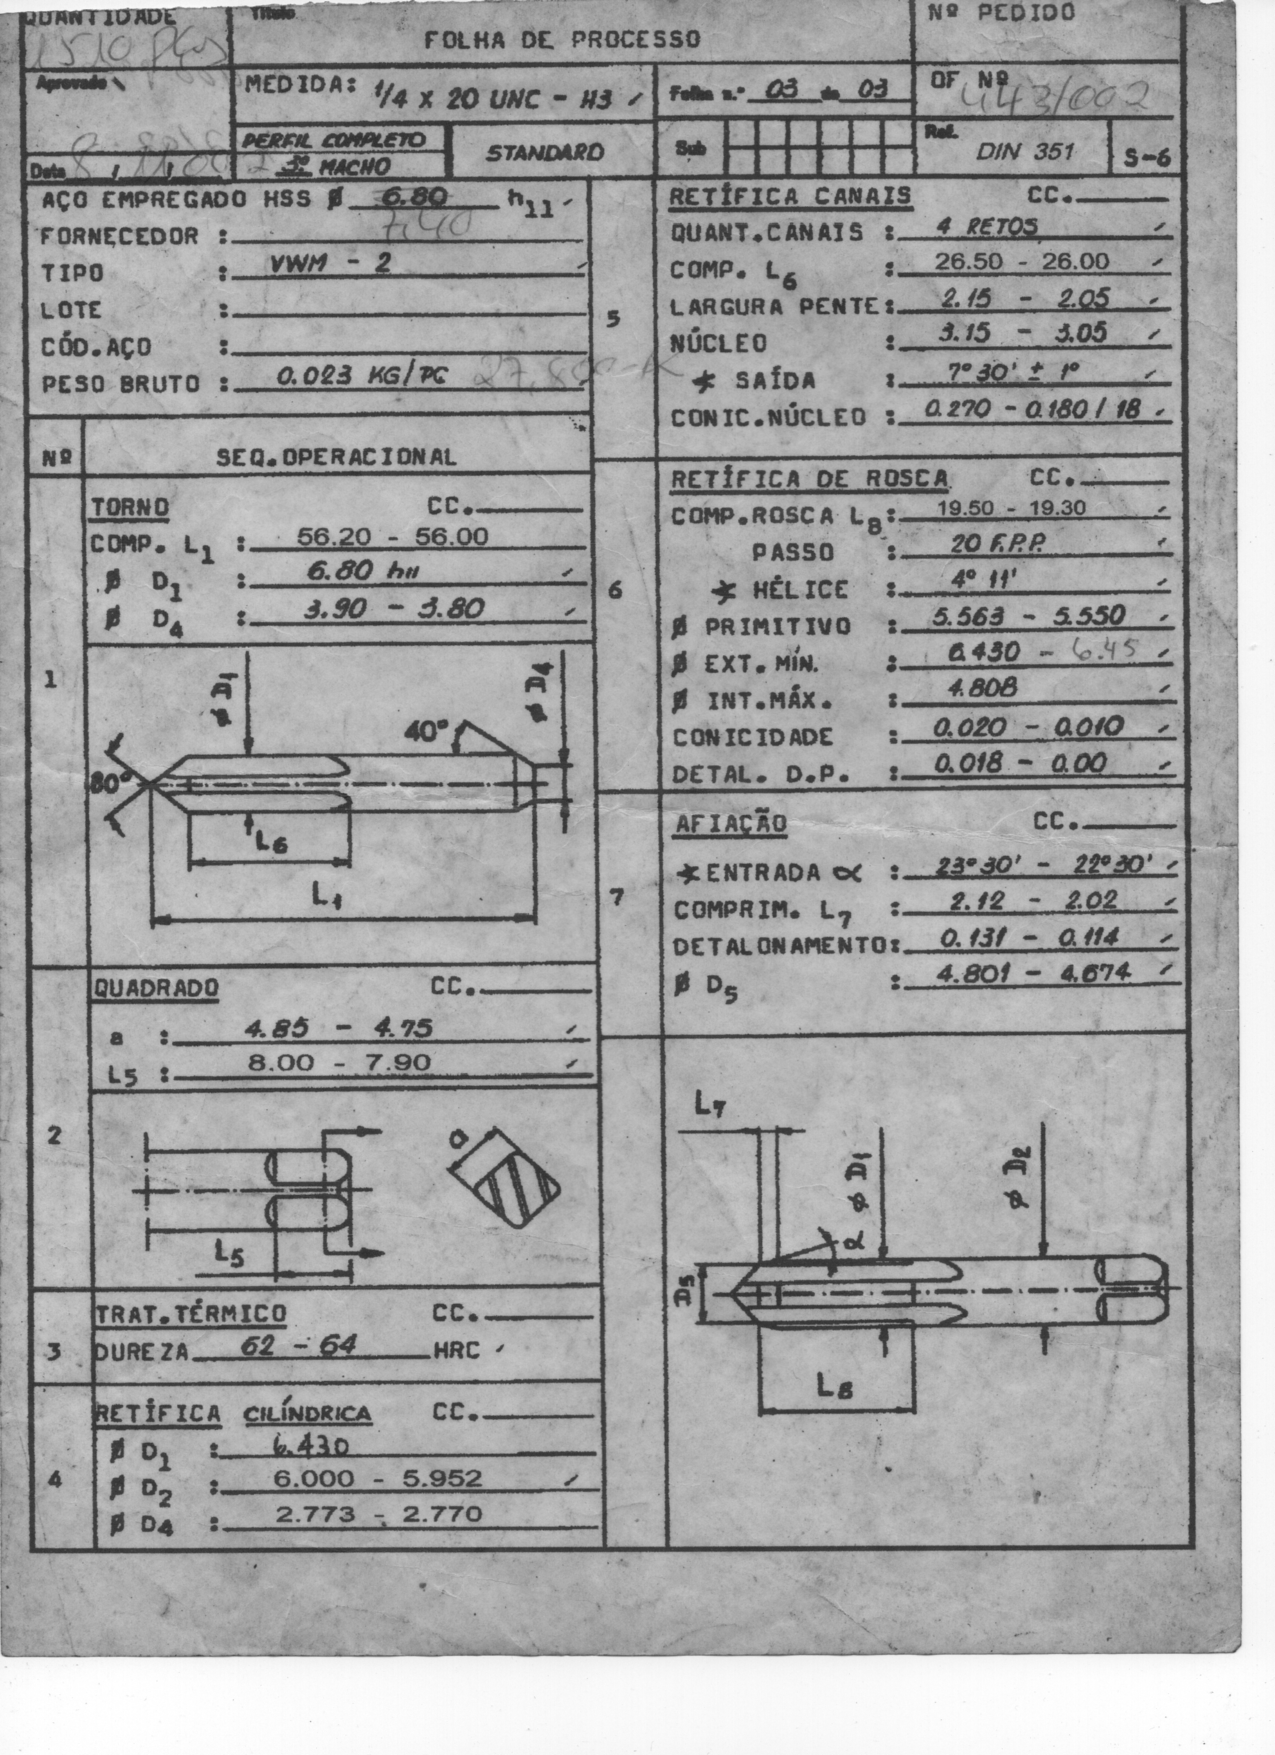 QUANTIDADE
Título
FOLHA DE PROCESSO
Nº PEDIDO
Aprovado
MEDIDA: 1/4 X 20 UNC - H3
Folha n.º 03 de 03
OF Nº
443/002
Data
PERFIL COMPLETO
3º MACHO
STANDARD
Sub
Ref.
DIN 351
S-6
AÇO EMPREGADO HSS Ø 6.80 h11
7,40
FORNECEDOR :
TIPO : VWM - 2
LOTE :
CÓD.AÇO :
PESO BRUTO : 0.023 KG/PC
Nº
SEQ.OPERACIONAL
1
TORNO CC.
COMP. L1 : 56.20 - 56.00
Ø D1 : 6.80 h11
Ø D4 : 3.90 - 3.80
Ø D1
Ø D4
40°
80°
L6
L1
2
QUADRADO CC.
a : 4.85 - 4.75
L5 : 8.00 - 7.90
a
L5
3
TRAT.TÉRMICO CC.
DUREZA 62 - 64 HRC
4
RETÍFICA CILÍNDRICA CC.
Ø D1 : 6.430
Ø D2 : 6.000 - 5.952
Ø D4 : 2.773 - 2.770
5
RETÍFICA CANAIS CC.
QUANT.CANAIS : 4 RETOS
COMP. L6 : 26.50 - 26.00
LARGURA PENTE: 2.15 - 2.05
NÚCLEO : 3.15 - 3.05
∢ SAÍDA : 7°30' ± 1°
CONIC.NÚCLEO : 0.270 - 0.180 / 18
6
RETÍFICA DE ROSCA CC.
COMP.ROSCA L8: 19.50 - 19.30
PASSO : 20 F.P.P.
∢ HÉLICE : 4° 11'
Ø PRIMITIVO : 5.563 - 5.550
Ø EXT. MÍN. : 6.430 - 6.45
Ø INT.MÁX. : 4.808
CONICIDADE : 0.020 - 0.010
DETAL. D.P. : 0.018 - 0.00
7
AFIAÇÃO CC.
∢ ENTRADA α : 23°30' - 22°30'
COMPRIM. L7 : 2.12 - 2.02
DETALONAMENTO: 0.131 - 0.114
Ø D5 : 4.801 - 4.674
L7
Ø D1
Ø D2
α
D5
L8